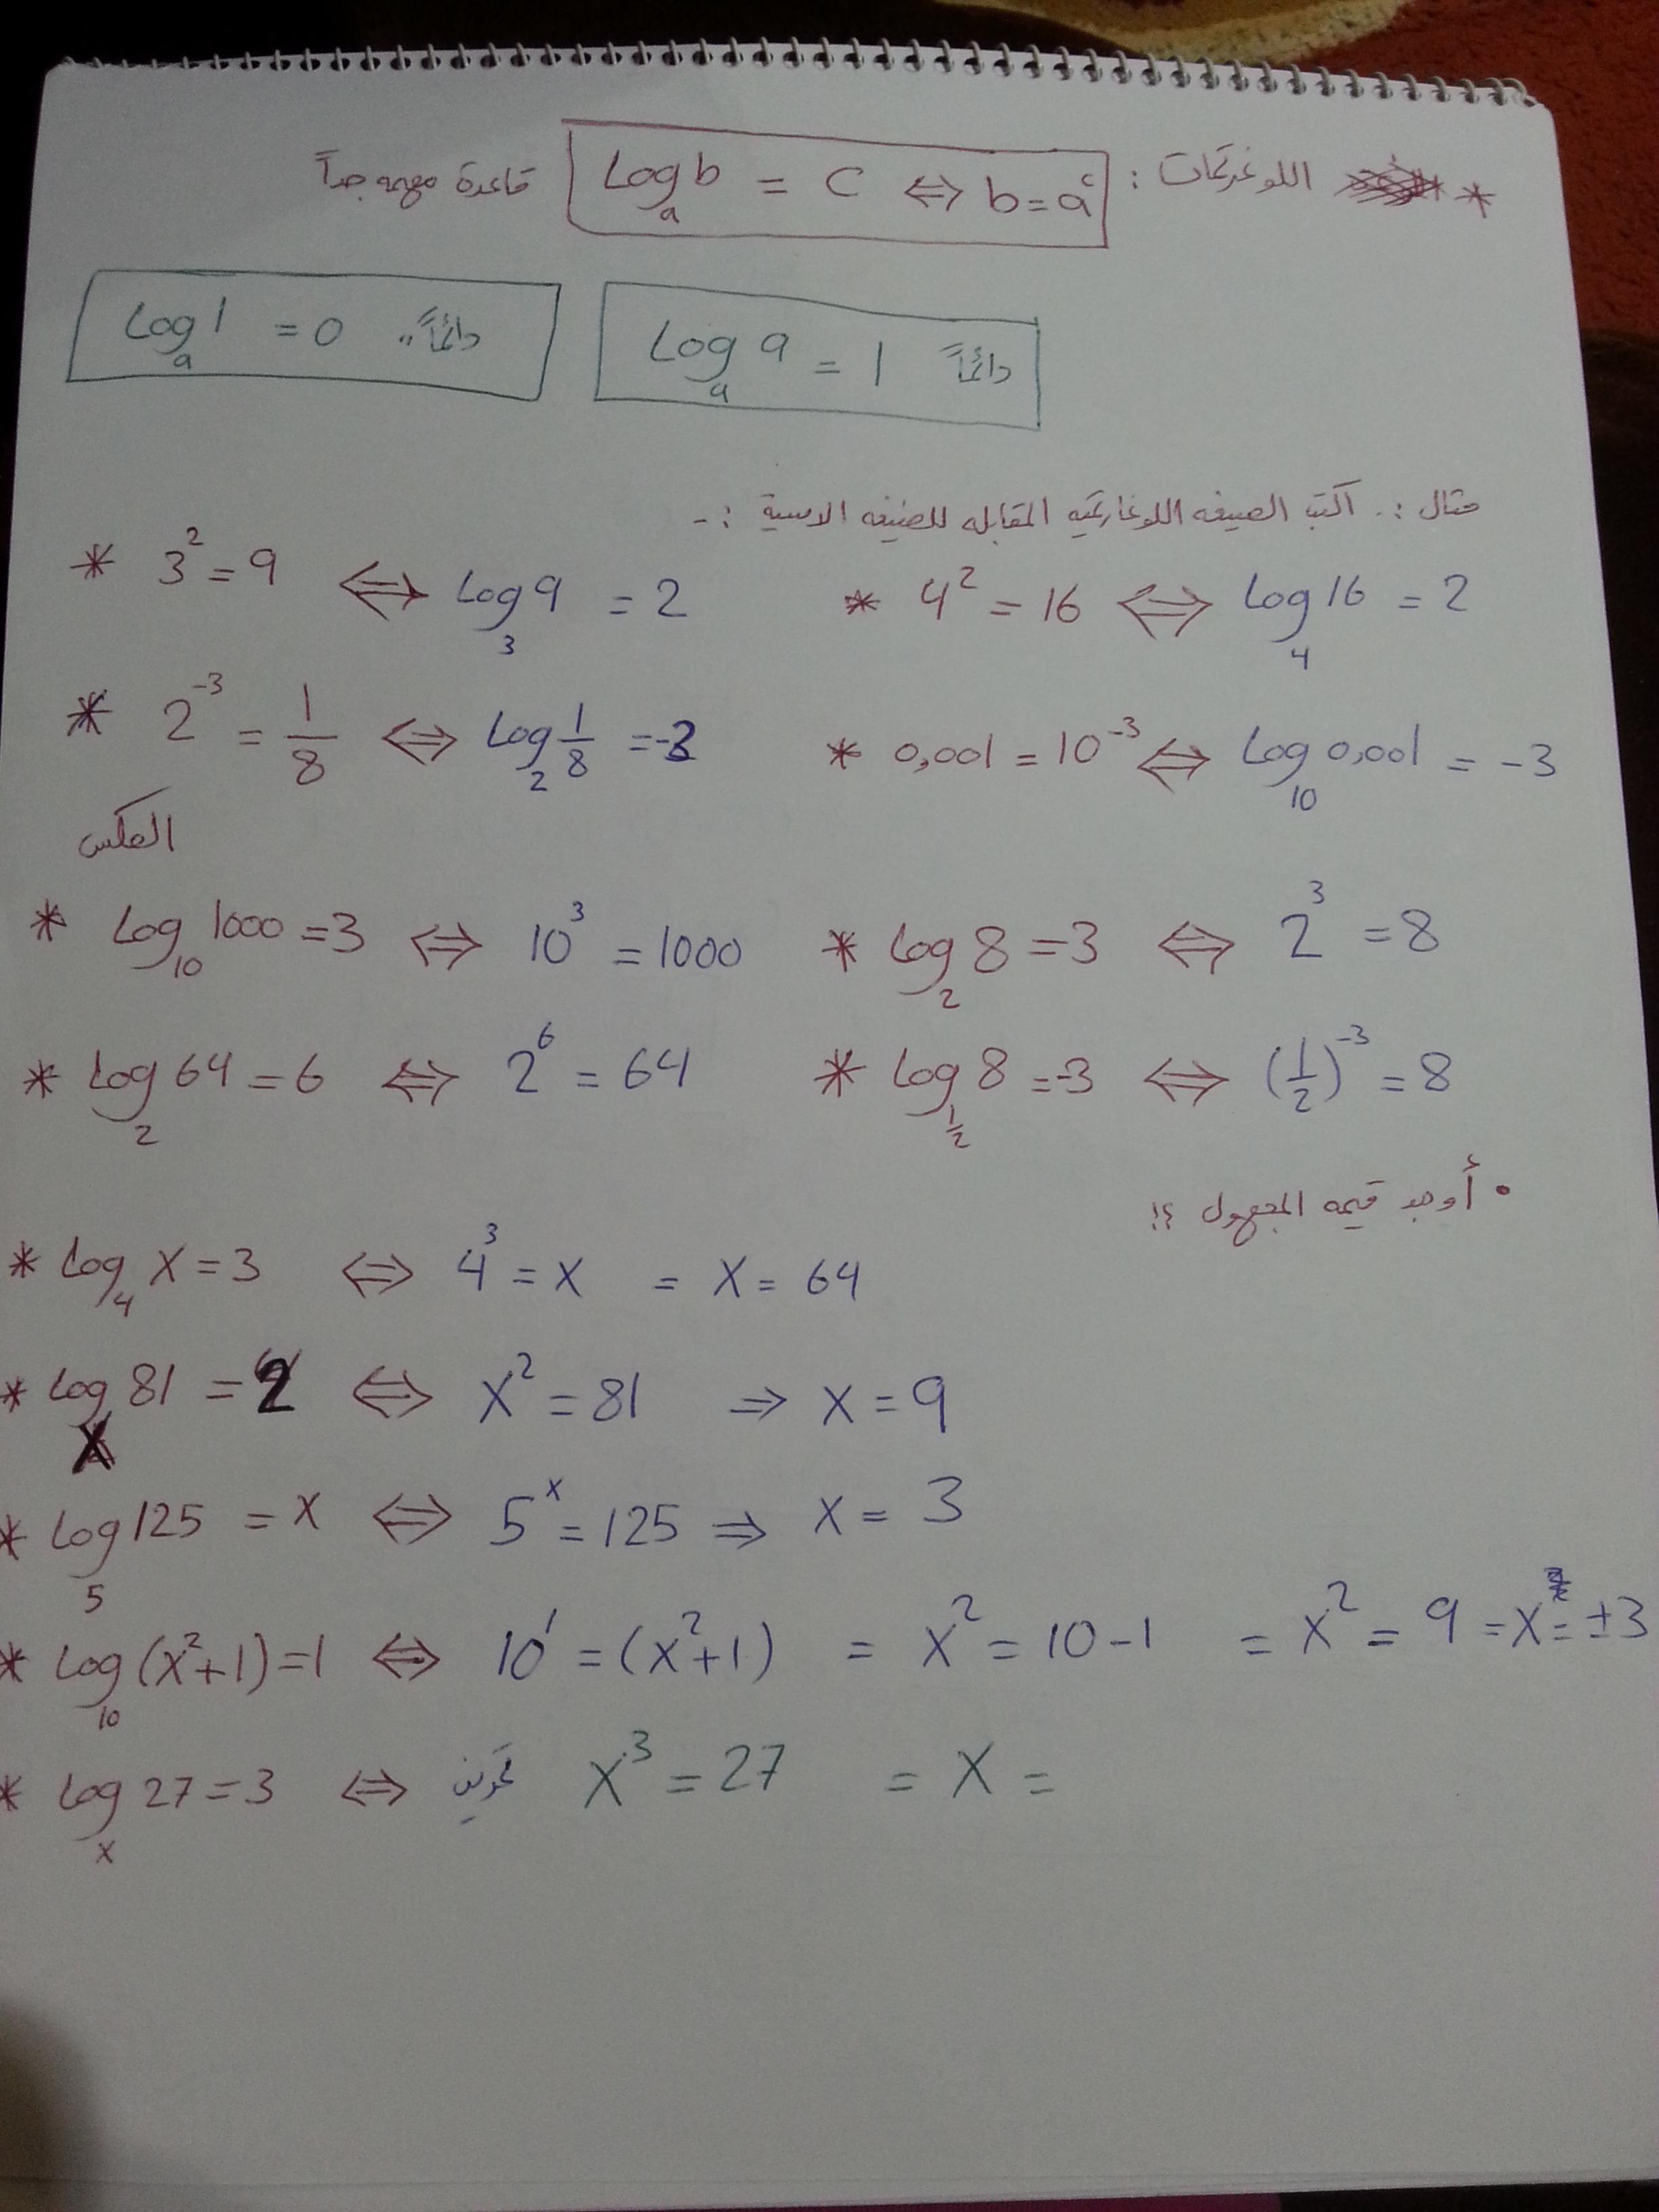 * اللوغرتمات : log_a b = c ⇔ b = a^c قاعدة مهمه جداً
log_a a = 1 دائماً
log_a 1 = 0 دائماً
مثال :- اكتب الصيغه اللوغارتميه المقابله للصيغه الاسية :-
* 3^2 = 9 ⇔ log_3 9 = 2 * 4^2 = 16 ⇔ log_4 16 = 2
* 2^-3 = 1/8 ⇔ log_2 1/8 = -3 * 0,001 = 10^-3 ⇔ log_10 0,001 = -3
العكس
* log_10 1000 = 3 ⇔ 10^3 = 1000 * log_2 8 = 3 ⇔ 2^3 = 8
* log_2 64 = 6 ⇔ 2^6 = 64 * log_1/2 8 = -3 ⇔ (1/2)^-3 = 8
• أوجد قيمه المجهول ؟!
* log_4 x = 3 ⇔ 4^3 = x = x = 64
* log_x 81 = 2 ⇔ x^2 = 81 ⇒ x = 9
* log_5 125 = x ⇔ 5^x = 125 ⇒ x = 3
* log_10 (x^2+1) = 1 ⇔ 10^1 = (x^2+1) = x^2 = 10-1 = x^2 = 9 = x = ±3
* log_x 27 = 3 ⇔ تمرين x^3 = 27 = x =